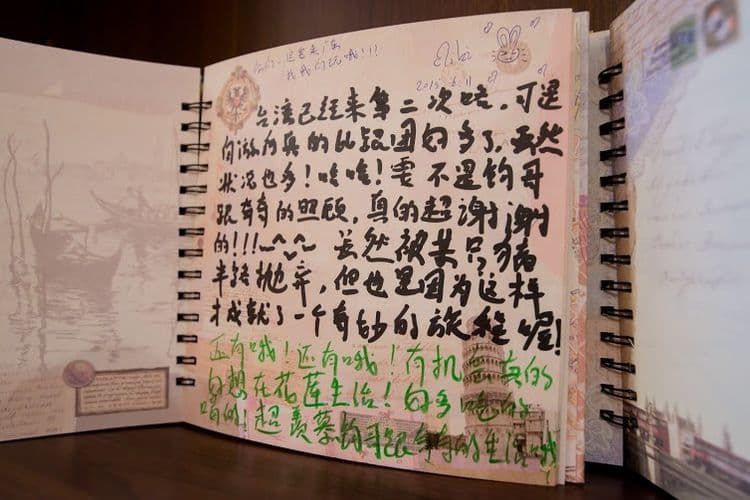 找我们玩哦!!!
2015.6.11
台湾已经来第二次咯,可是
真的比跟团好多了,虽然
状况也多!哈哈!要不是钧哥
跟奇奇的照顾,真的超谢谢
的!!!~^_^~ 虽然被某只猪
半路抛弃,但也是因为这样
才成就了一个奇妙的旅程喔!
还有哦!还有哦!有机会真的
好想在花莲生活!好多吃的
喝的!超羡慕钧哥跟奇奇的生活哦